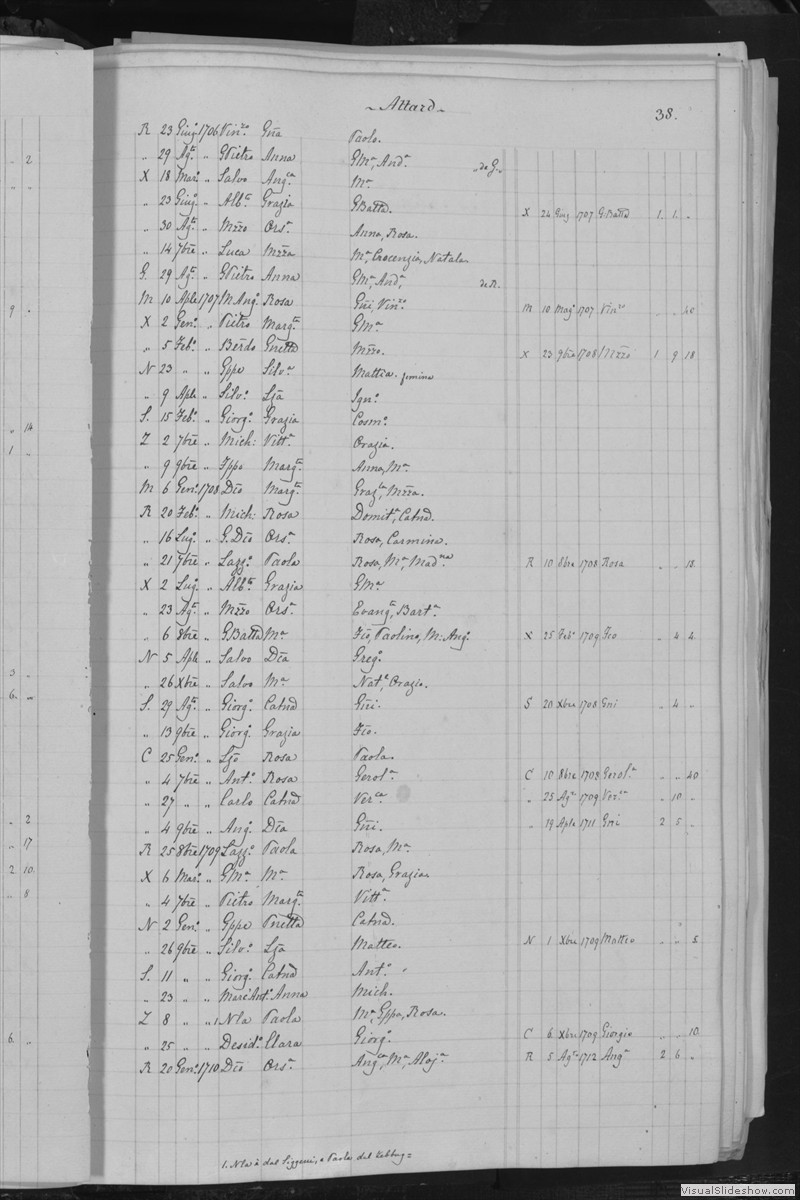 ~ Attard ~
38.
R 23 Giug. 1706 Vin.zo Gña Paolo.
„ 29 Ag.to „ GPietro Anna GM.a, And.a de G.
X 18 Mar.o „ Salvo Ang.ca M.a
„ 23 Giug. „ Alb.to Grazia GBatta. X 24 Giug 1707 G.Batta 1. 1. „
„ 30 Ag.to „ Mzzo Ors.a Anna, Rosa.
„ 14 7bre „ Luca Mzza M.a, Crocenzia, Natala.
G. 29 Ag.to „ GPietro Anna GM.a, And.a, de R.
M 10 Aple 1707 M.Ang.o Rosa Gñi, Vin.zo M 10 Mag.o 1707 Vin.zo „ „ 40
X 2 Gen.o „ Pietro Marg.ta GM.a
„ 5 Feb.o „ Berdo Gñetta Mzzo. X 23 9bre 1708 Mzzo 1 9 18
N 23 „ „ Gppe Silv.a Mattia. femina
„ 9 Aple „ Silv.o Lza Ign.o
S. 15 Feb.o „ Giorg.o Grazia Cosm.o
Z 2 7bre „ Mich: Vitt.a Orazia.
„ 9 9bre „ Fppo Marg.ta Anna, M.a
M 6 Gen.o 1708 Dio Marg.ta Graz.a, Mzza.
R 20 Feb.o „ Mich: Rosa Domit.a, Catnd.
„ 16 Lug.o „ G.Dio Ors.a Rosa, Carmina.
„ 21 7bre „ Lazz.o Paola Rosa, M.a, Mad.na R 10 8bre 1708 Rosa „ „ 18
X 2 Lug.o „ Alb.to Grazia GM.a
„ 23 Ag.to „ Mzzo Ors.a Evang.a, Bart.a
„ 6 8bre „ GBatta M.a Fio, Paolino, M: Ang.o X 25 Feb.o 1709 Fio „ 4 4.
N 5 Aple „ Salvo Dia Greg.o
„ 26 Xbre „ Salvo M.a Nat.e, Orazio.
S. 29 Ag.to „ Giorg.o Catnd Gñi. S 20 Xbre 1708 Gñi „ 4 „
„ 13 9bre „ Giorg.o Grazia Fio.
C 25 Gen.o „ Lzo Rosa Paola.
„ 4 7bre „ Ant.o Rosa Gerol.a C 10 8bre 1708 Gerol.a „ „ 40
„ 27 „ „ Carlo Catnd Ver.ca „ 25 Ag.to 1709 Ver.ca „ 10 „
„ 4 9bre „ Ang.o Dia Gñi. „ 19 Aple 1711 Gñi 2 5 „
R 25 8bre 1709 Lazz.o Paola Rosa, M.a
X 6 Mar.o „ GM.a M.a Rosa, Grazia.
„ 4 7bre „ Pietro Marg.ta Vitt.a
N 2 Gen.o „ Gppe Pñetta Catnd.
„ 26 9bre „ Silv.o Lza Matteo. N 1 Xbre 1709 Matteo „ „ 5
S. 11 „ „ Giorg.o Catnd Ant.o
„ 23 „ „ Marc'Ant.o Anna Mich.
Z 8 „ „ 1. Nla Paola M.a, Gppa, Rosa.
„ 25 „ „ Desid.o Clara Giorg.o C 6 Xbre 1709 Giorgio „ „ 10.
R 20 Gen.o 1710 Dio Ors.a Ang.ca, M.a, Aloj.a R 5 Ag.to 1712 Ang.a 2 6 „
1. Nla à dal Siggeui, e Paola dal Kebbug =
VisualSlideshow.com